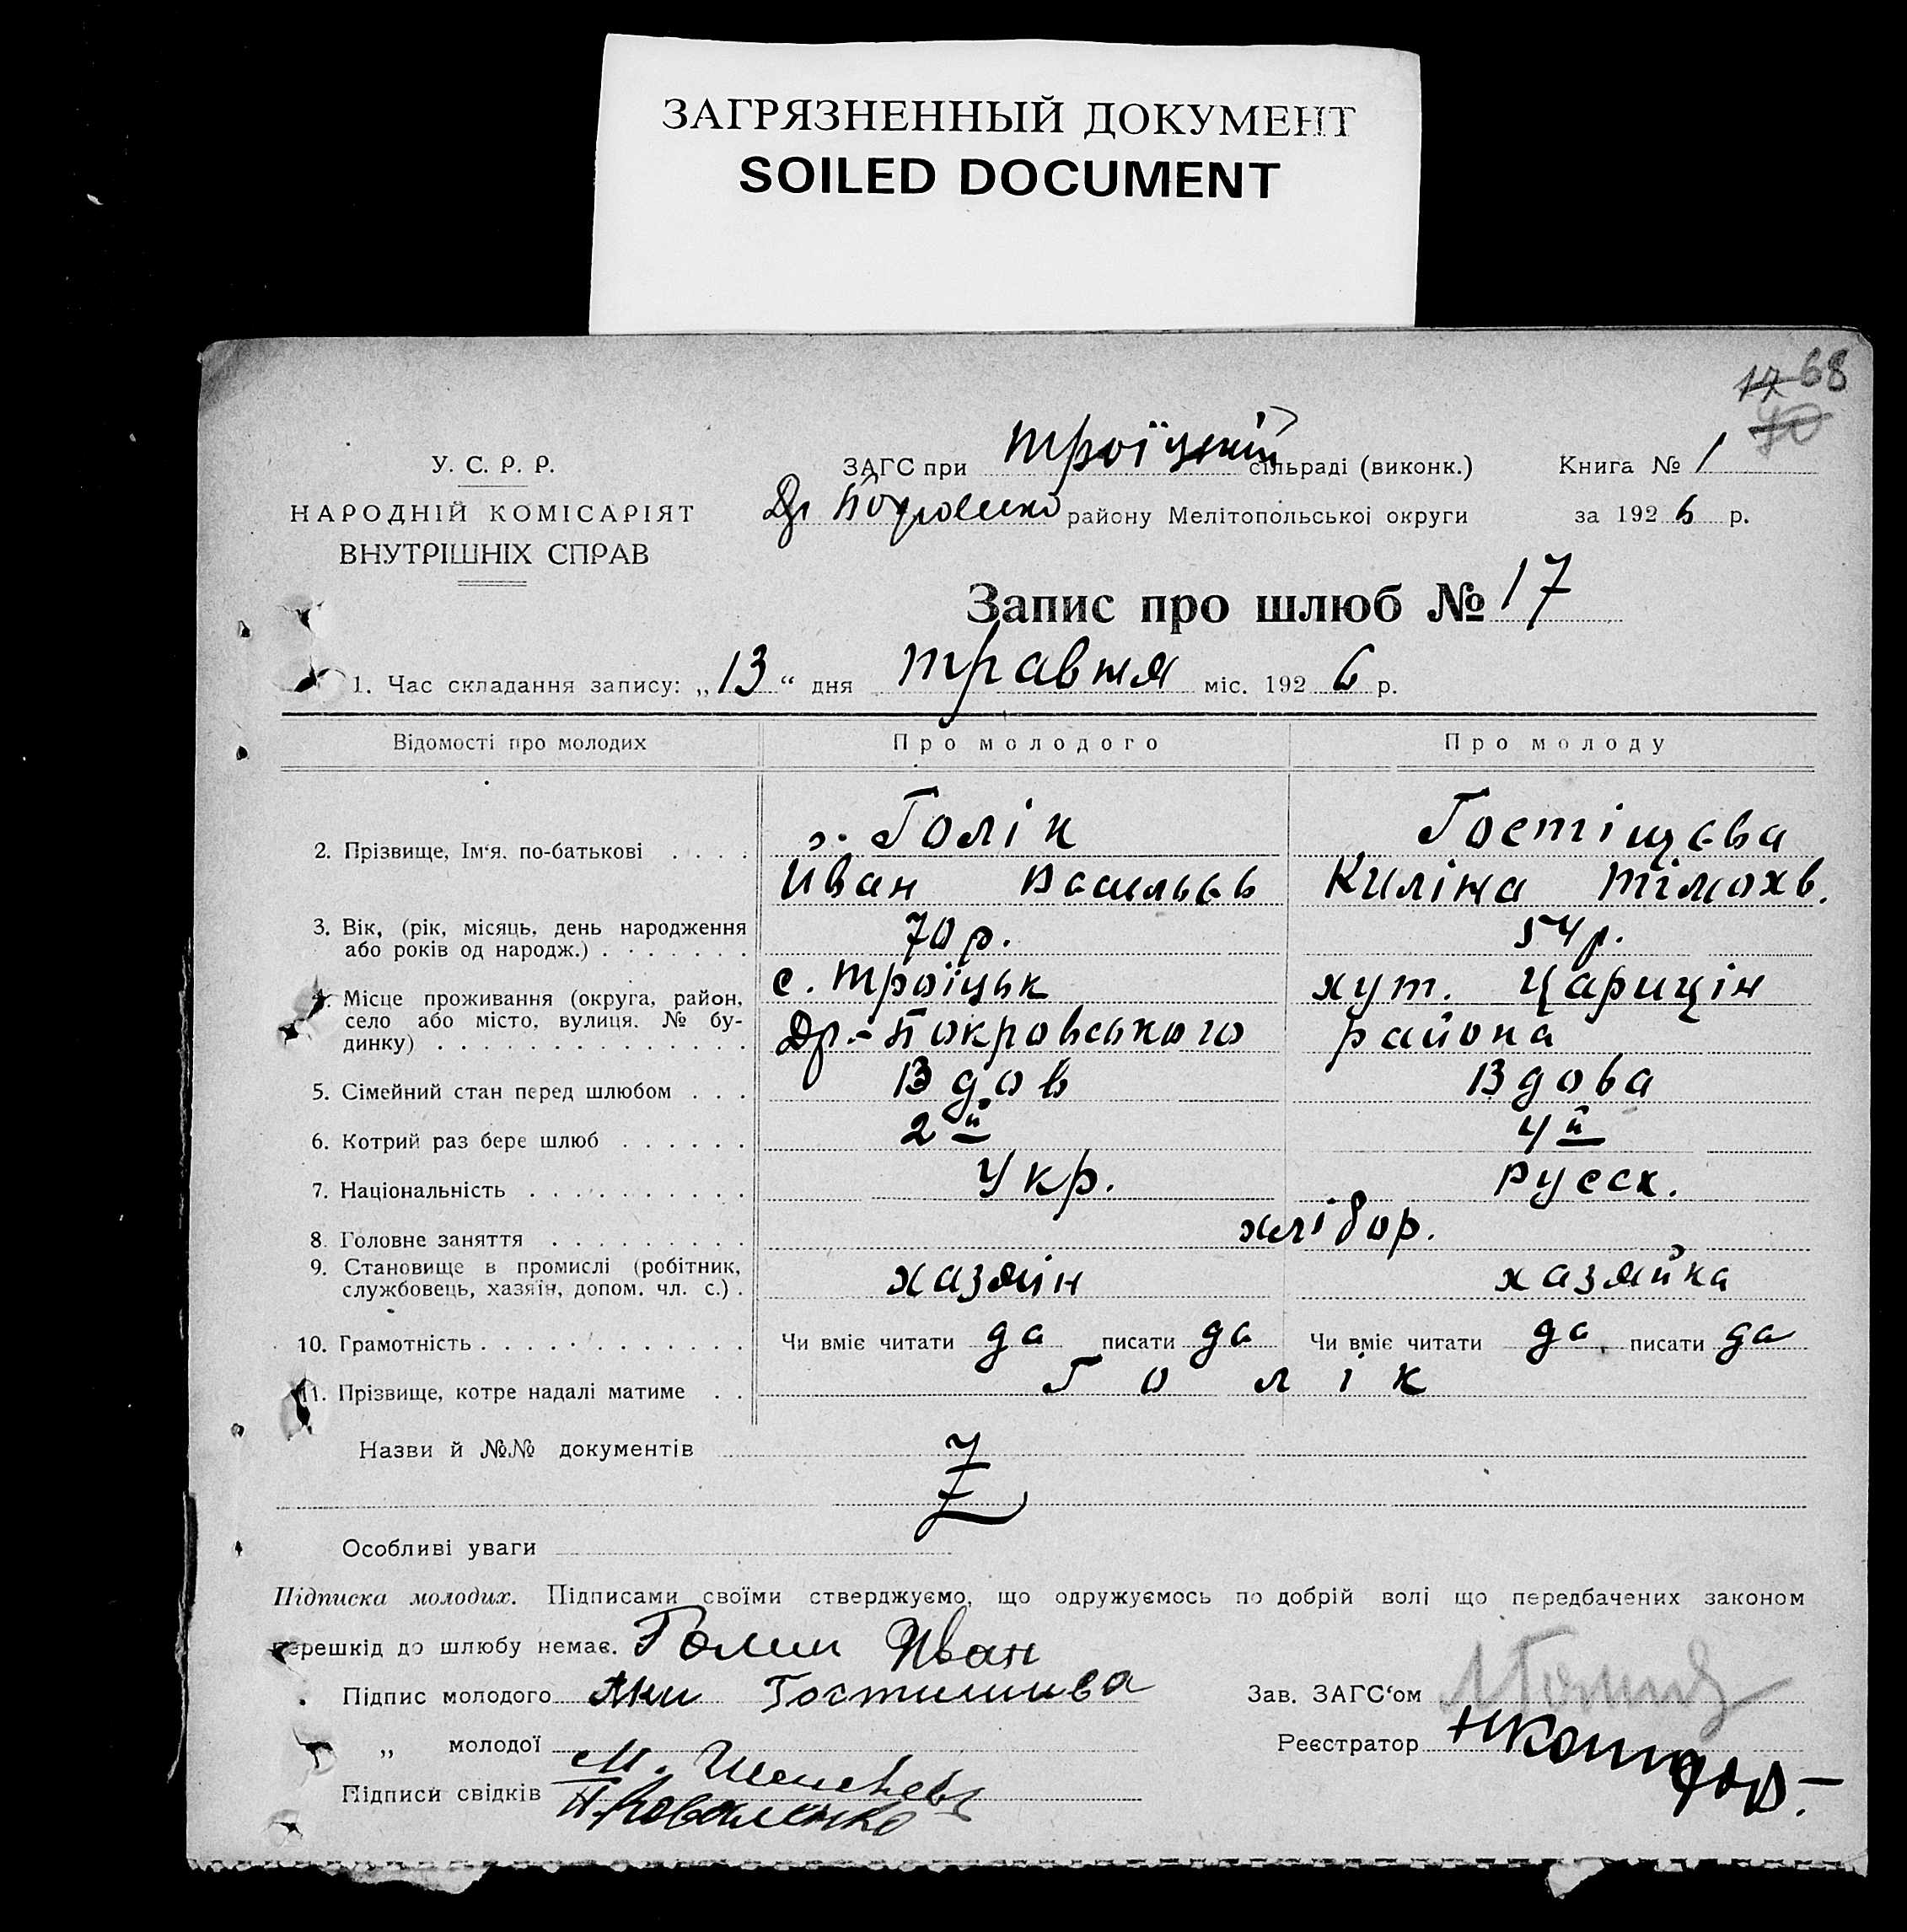 ЗАГРЯЗНЕННЫЙ ДОКУМЕНТ
SOILED DOCUMENT
17 68
У. С. Р. Р.
НАРОДНІЙ КОМІСАРІЯТ
ВНУТРІШНІХ СПРАВ
ЗАГС при Троїцкій сільраді (виконк.) Книга № 1
району Мелітопольськоі округи за 1926 р.
Запис про шлюб № 17
1. Час складання запису: „13“ дня травня міс. 1926 р.
Відомості про молодих Про молодого Про молоду
2. Прізвище, Ім‘я, по-батькові . . . . Голік Гостіщєва
Иван Васильєв Килина Тімохв.
3. Вік, (рік, місяць, день народження
або років од народж.) . . . . . . . 70 р. 54 р.
4. Місце проживання (округа, район,
село або місто, вулиця. № бу-
динку) . . . . . . . . . . . . . . с. Троїцьк хут. Царицін
Др.-Покровського района
5. Сімейний стан перед шлюбом . . . Вдов Вдова
6. Котрий раз бере шлюб . . . . . . 2й 4й
7. Національність . . . . . . . . . . Укр. Русск.
8. Головне заняття . . . . . . . . . хлібор.
9. Становище в промислі (робітник,
службовець, хазяїн, допом. чл. с.) . хазяін хазяйка
10. Грамотність . . . . . . . . . . . . Чи вміє читати да писати да Чи вміє читати да писати да
11. Прізвище, котре надалі матиме . . Голік
Назви й №№ документів
Особливі уваги
Підписка молодих. Підписами своїми стверджуємо, що одружуємось по добрій волі що передбачених законом
перешкід до шлюбу немає. Голик Иван
Підпис молодого Гостишива Зав. ЗАГС‘ом
„ молодої Реєстратор
Підписи свідків М.
П. Коваленко